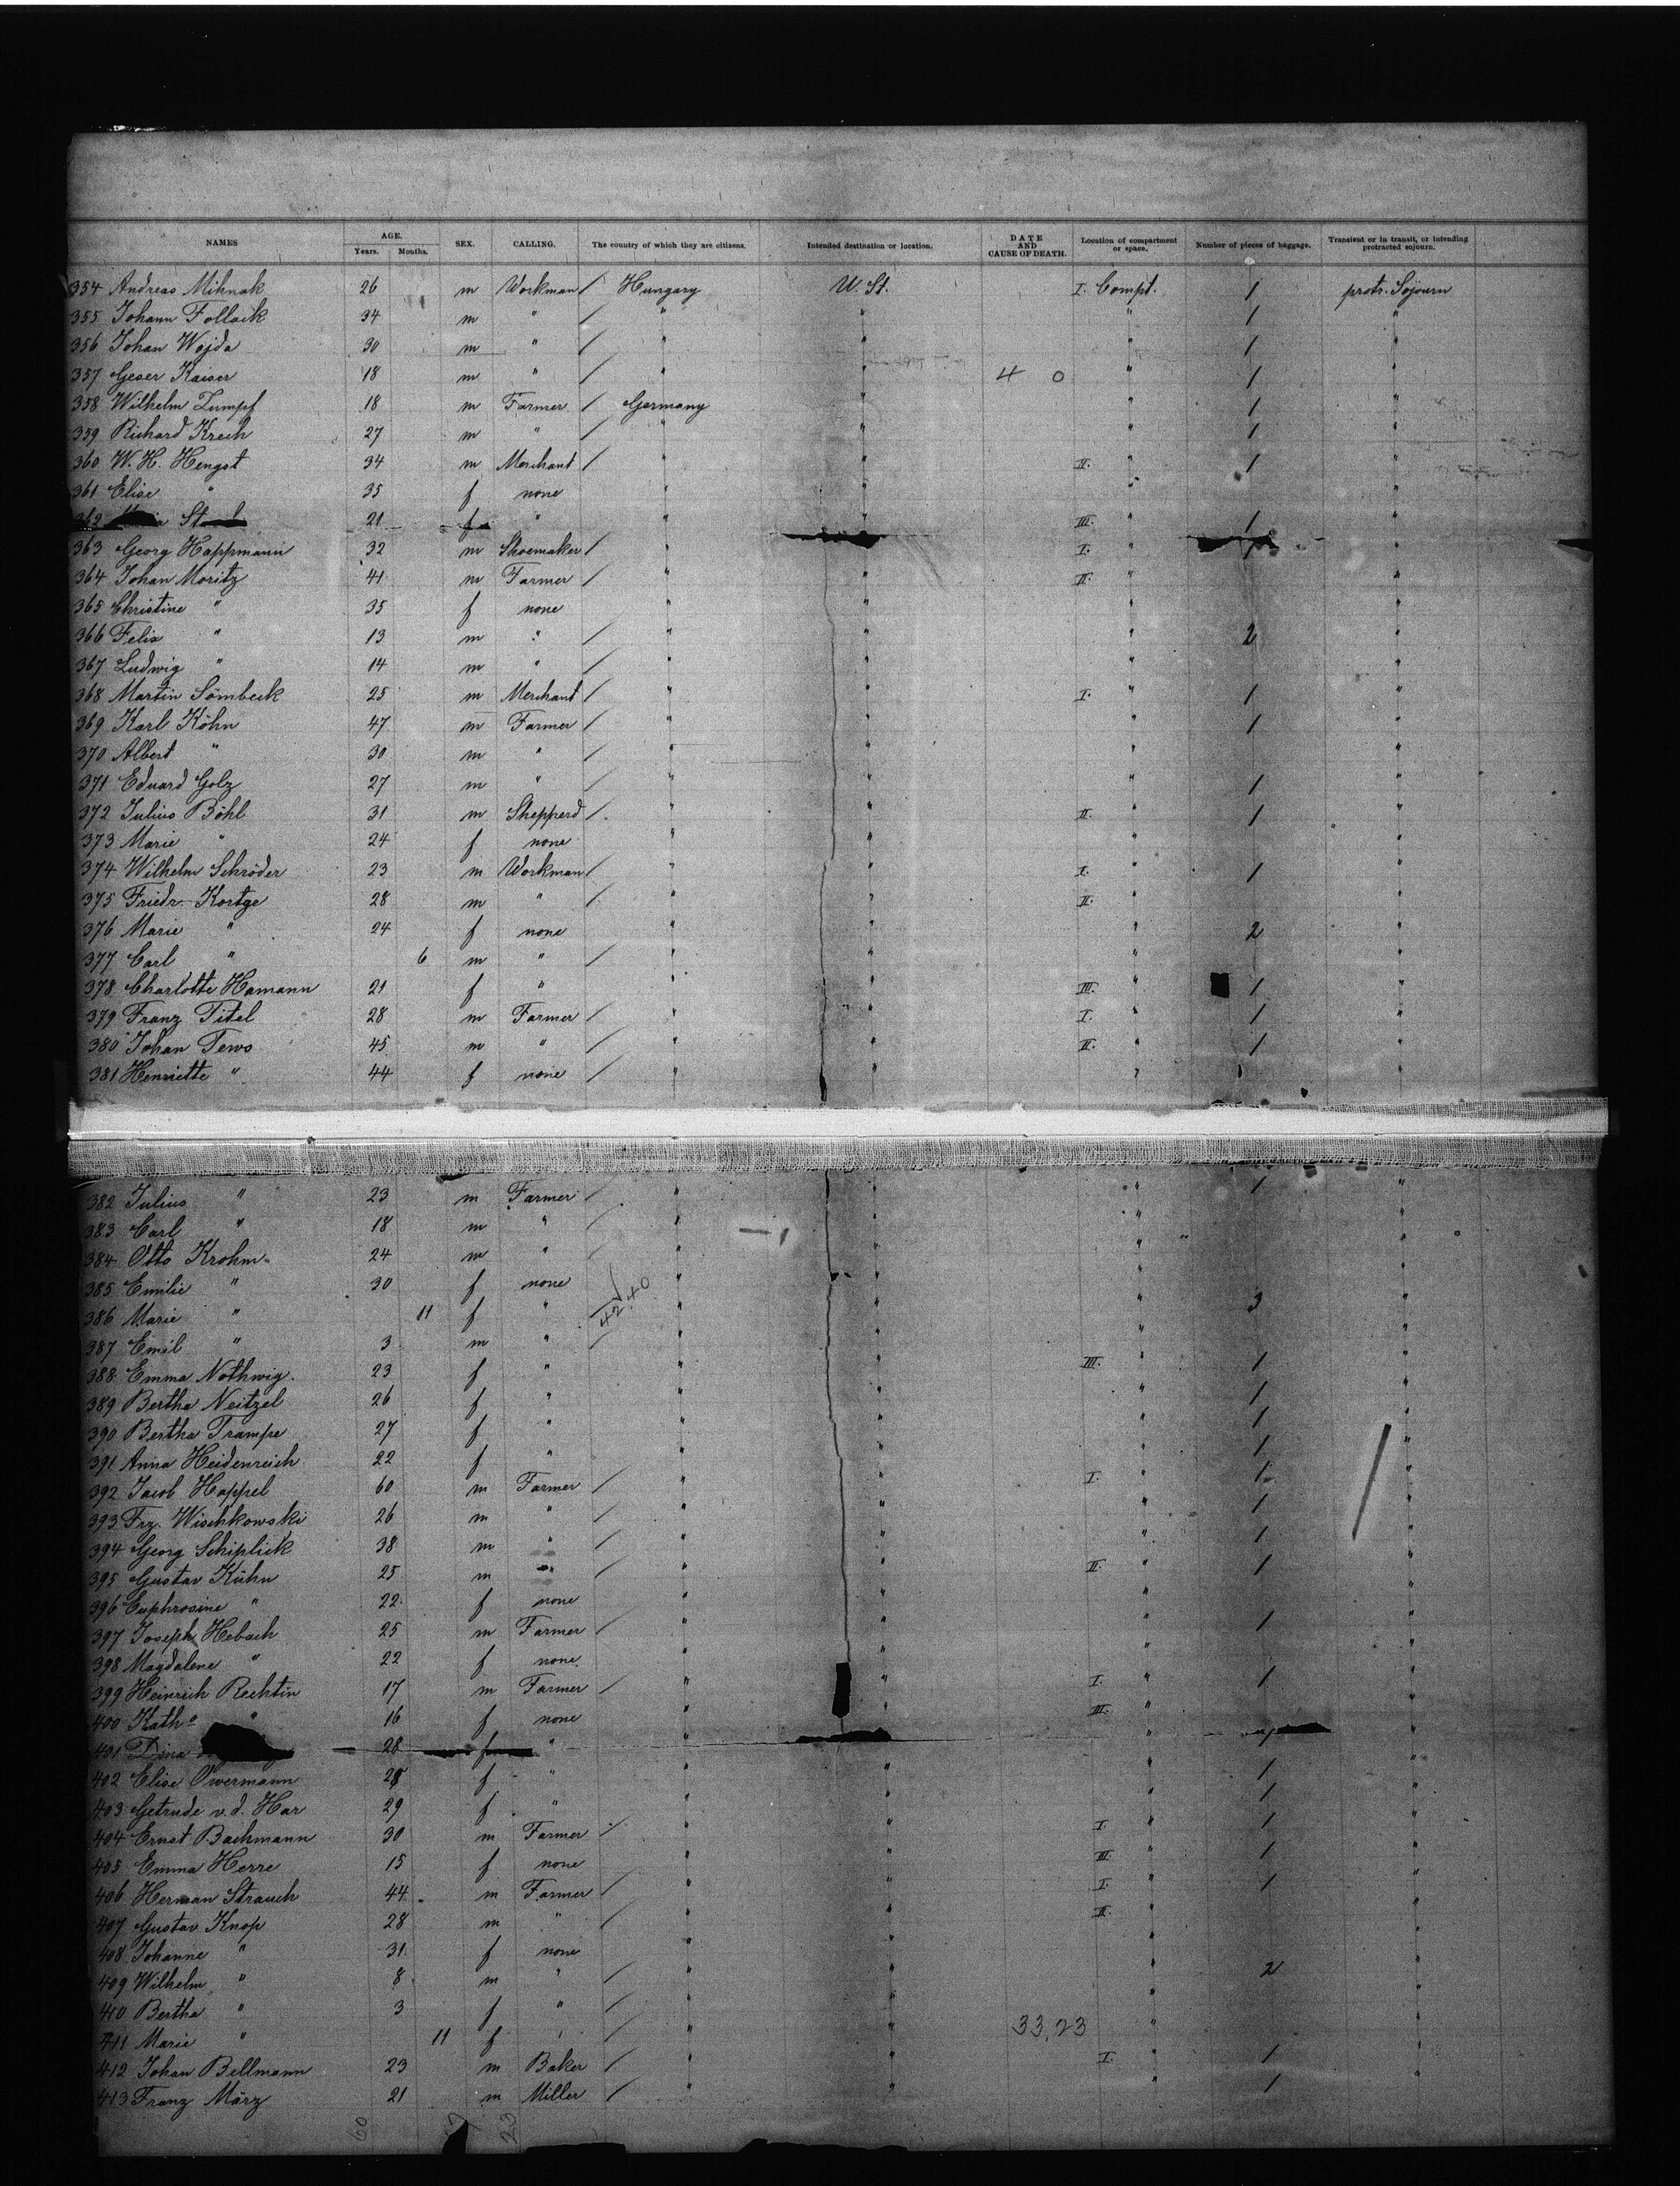 NAMES AGE. Years. Months. SEX. CALLING. The country of which they are citizens. Intended destination or location. DATE AND CAUSE OF DEATH. Location of compartment or space. Number of pieces of baggage. Transient or in transit, or intending protracted sojourn.
354 Andreas Mihnak 26 m Workman / Hungary U. St. I. Compt. 1 protr. Sojourn
355 Johann Follack 34 m " / " " " 1 "
356 Johan Wojda 30 m " / " " " 1 "
357 Geser Kaiser 18 m " / " " 4 0 " 1 "
358 Wilhelm Zumpf 18 m Farmer / Germany " " 1 "
359 Richard Krech 27 m " / " " " 1 "
360 W. H. Hengst 34 m Merchant / " " II. " 1 "
361 Elise " 35 f none " " " "
362 21 f " " " III. " 1 "
363 Georg Happmann 32 m Shoemaker / " I. " 1 "
364 Johan Moritz 41 m Farmer / " " II. " "
365 Christine " 35 f none " " " "
366 Felix " 13 m " / " " " 2 "
367 Ludwig " 14 m " / " " " "
368 Martin Sömbeck 25 m Merchant / " " I. " 1 "
369 Karl Köhn 47 m Farmer / " " " 1 "
370 Albert " 30 m " / " " " "
371 Eduard Golz 27 m " / " " " 1 "
372 Julius Böhl 31 m Shepperd / " " II. " 1 "
373 Marie " 24 f none " " " "
374 Wilhelm Schröder 23 m Workman / " " I. " 1 "
375 Friedr. Kortge 28 m " / " " II. " "
376 Marie " 24 f none " " " 2 "
377 Carl " 6 m " / " " " "
378 Charlotte Hamann 21 f " " " III. " 1 "
379 Franz Titel 28 m Farmer / " " I. " 1 "
380 Johan Tews 45 m " / " " II. " 1 "
381 Henriette " 44 f none / " " " "
382 Julius " 23 m Farmer / " " " 1 "
383 Carl " 18 m " / " — 1 " " "
384 Otto Krohm 24 m " / " " " "
385 Emilie " 30 f none " " " "
386 Marie " 11 f " 4240 " " " 3 "
387 Emil " 3 m " / " " " "
388 Emma Nothwig. 23 f " " " III. " 1 "
389 Bertha Neitzel 26 f " " " " 1 "
390 Bertha Trampe 27 f " " " " 1 "
391 Anna Heidenreich 22 f " " " " 1 "
392 Jacob Happel 60 m Farmer / " " I. " 1 "
393 Frz. Wischkowski 26 m " / " " " 1 "
394 Georg Schiplick 38 m " / " " " 1 "
395 Gustav Kühn 25 m " / " " II. " 1 "
396 Euphrosine " 22 f none " " " "
397 Joseph Hebach 25 m Farmer / " " " 1 "
398 Magdalene " 22 f none " " " "
399 Heinrich Rechtin 17 m Farmer / " " I. " 1 "
400 Kath. " 16 f none " III. " "
401 Dina 28 f " " " 1 "
402 Elise Owermann 28 f " " " " 1 "
403 Getrude v. d. Har 29 f " " " " 1 "
404 Ernst Bachmann 30 m Farmer / " " I. " 1 "
405 Emma Herre 15 f none " " III. " 1 "
406 Herman Strauch 44 m Farmer / " " I. " 1 "
407 Gustav Knop 28 m " / " " II. " "
408 Johanne " 31 f none " " " "
409 Wilhelm " 8 m " / " " " 2 "
410 Bertha " 3 f " / " " " "
411 Marie " 11 f " / " " 33,23 " "
412 Johan Bellmann 23 m Baker / " " I. " 1 "
413 Franz März 21 m Miller / " " " 1
60 23